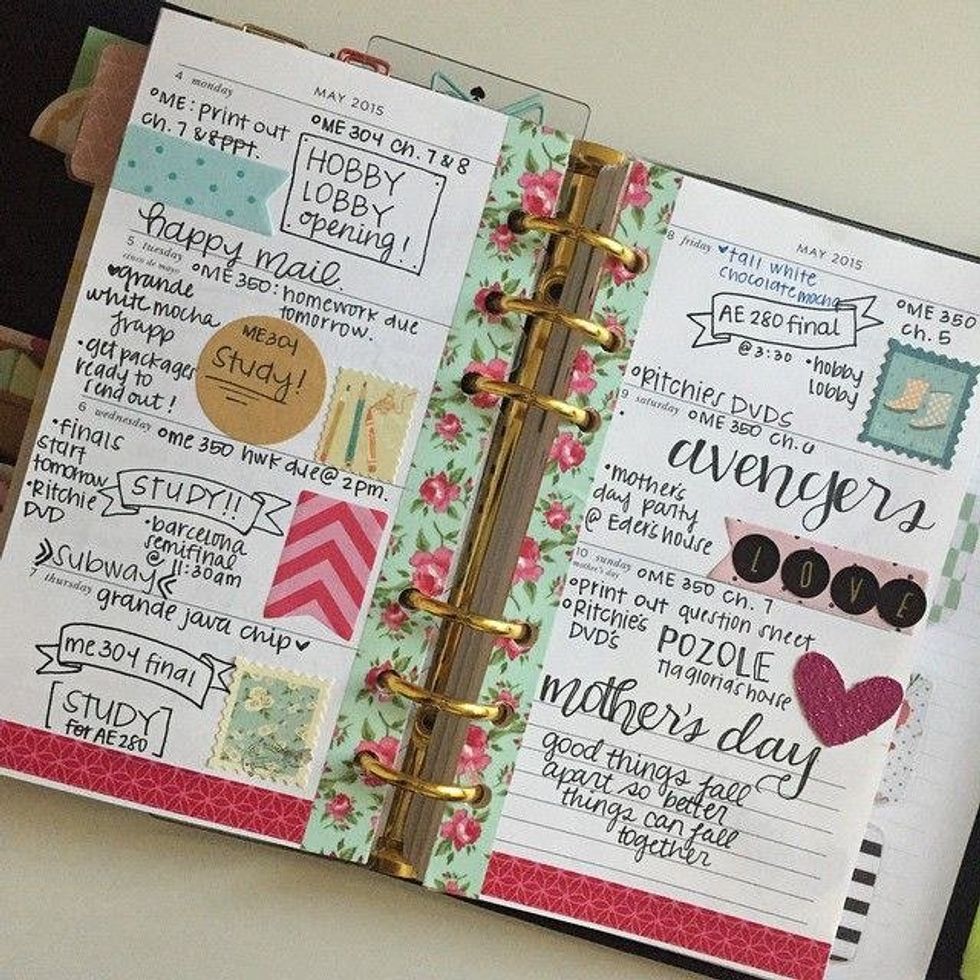 4 monday
MAY 2015
ME: print out
ch. 7 & 8 ppt.
ME 304 ch. 7 & 8
HOBBY
LOBBY
opening!
happy mail.
5 tuesday
cinco de mayo
ME 350: homework due
tomorrow.
grande
white mocha
frapp
• get packages
ready to
send out!
ME304
Study!
6 wednesday
me 350 hwk due @ 2pm.
• finals
start
tomorrow
• Ritchie
DVD
STUDY!!
• barcelona
semifinal
@ 11:30am
Subway
7 thursday
grande java chip
me 304 final
[STUDY
for AE 280]
8 friday
MAY 2015
tall white
chocolate mocha
AE 280 final
@ 3:30
ME 350
ch. 5
• hobby
lobby
Ritchies DVDS
9 saturday
ME 350 ch. 6
avengers
• mother's
day party
@ Eders house
LOVE
10 sunday
mother's day
ME 350 ch. 7
Print out question sheet
Ritchie's
DVD's
POZOLE
glorias house
mother's day
good things fall
apart so better
things can fall
together